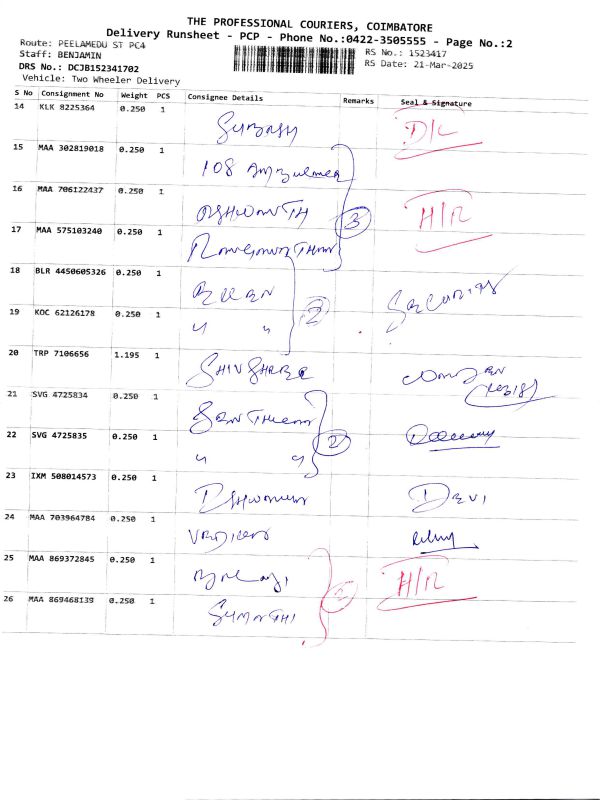 THE PROFESSIONAL COURIERS, COIMBATORE
Delivery Runsheet - PCP - Phone No.:0422-3505555 - Page No.:2
Route: PEELAMEDU ST PC4
RS No.: 1523417
Staff: BENJAMIN
RS Date: 21-Mar-2025
DRS No.: DCJB152341702
Vehicle: Two Wheeler Delivery
S No Consignment No Weight PCS Consignee Details Remarks Seal & Signature
14 KLK 8225364 0.250 1 SUBASH D/L
15 MAA 302819018 0.250 1 108
16 MAA 706122437 0.250 1 ASHWANTH 3 H/R
17 MAA 575103240 0.250 1
18 BLR 4450605326 0.250 1
19 KOC 62126178 0.250 1 " " 2
20 TRP 7106656 1.195 1
21 SVG 4725834 0.250 1
22 SVG 4725835 0.250 1 " " 2
23 IXM 508014573 0.250 1 DEVI
24 MAA 703964784 0.250 1
25 MAA 869372845 0.250 1 BALAJI H/R
26 MAA 869468139 0.250 1 SUMATHI 2